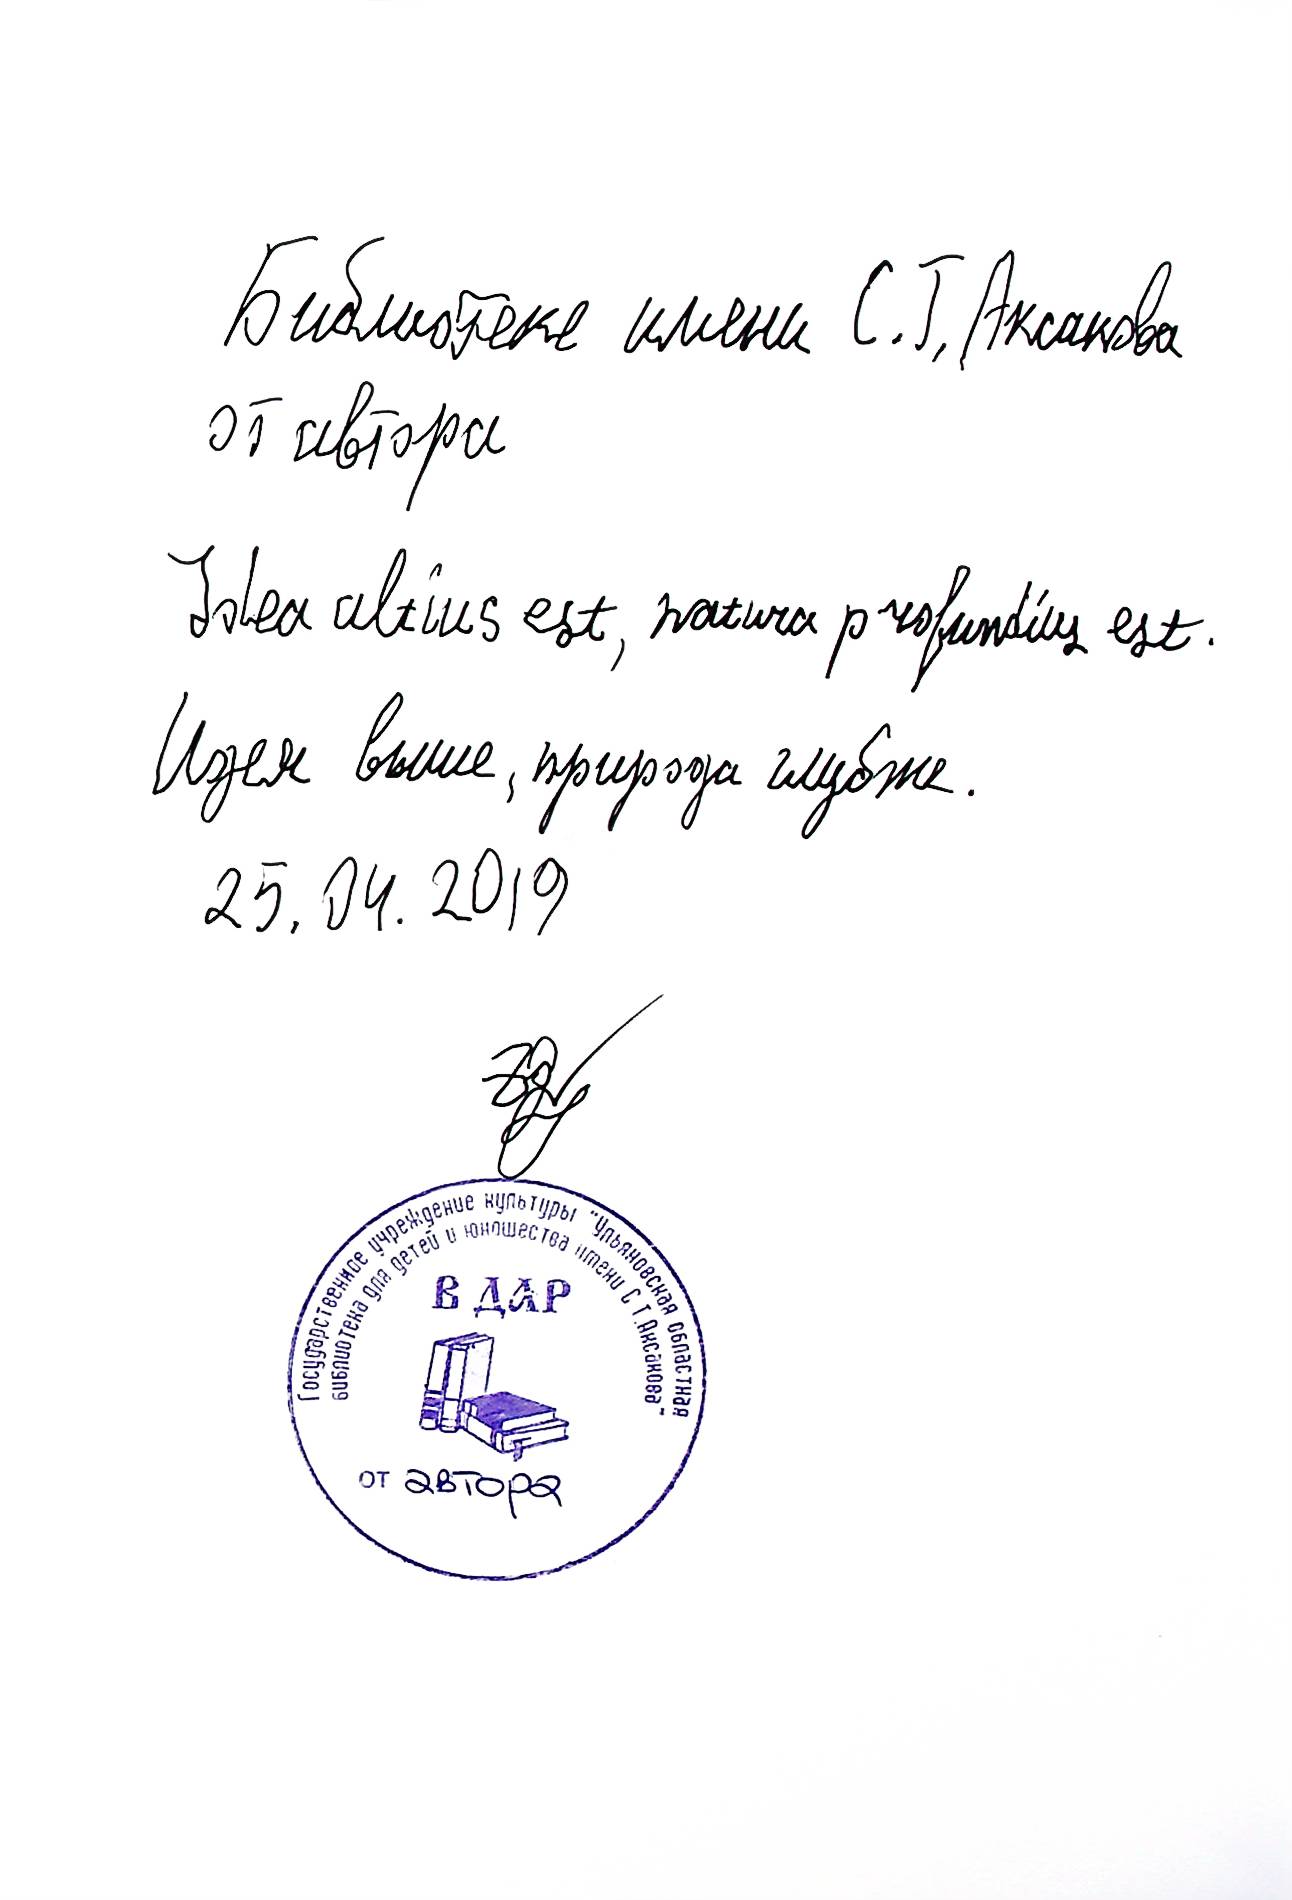 Библиотеке имени С.Т. Аксакова
от автора
Idea altius est, natura profundius est.
Идея выше, природа глубже.
25.04.2019
Государственное учреждение культуры "Ульяновская областная
библиотека для детей и юношества имени С.Т.Аксакова"
В ДАР
от автора